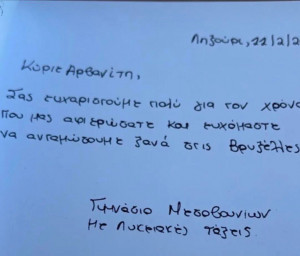 Ληξούρι, 11/2/2
Κύριε Αρβανίτη,
Σας ευχαριστούμε πολύ για τον χρόνο
που μας αφιερώσατε και ευχόμαστε
να ανταμώσουμε ξανά στις Βρυξέλλες
Γυμνάσιο Μεσοβουνίων
με Λυκειακές τάξεις